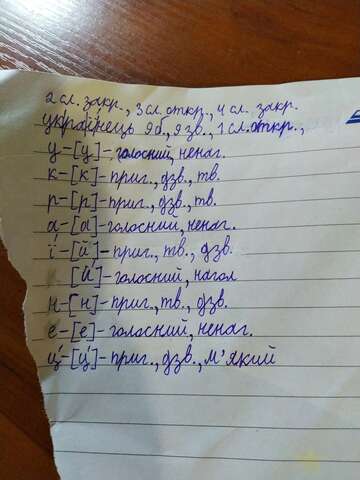 2 сл. закр., 3 сл. откр., 4 сл. закр.
українець 9б., 9 зв., 1 сл. откр.,
у-[у]-голосний, ненаг.
к-[к]-приг., дзв., тв.
р-[р]-приг., дзв., тв.
а-[а]-голосний, ненаг.
ї-[й]-приг., тв., дзв.
[й]-голосний, нагол
н-[н]-приг., тв., дзв.
е-[е]-голосний, ненаг.
ц'-[ц']-приг., дзв., м'який